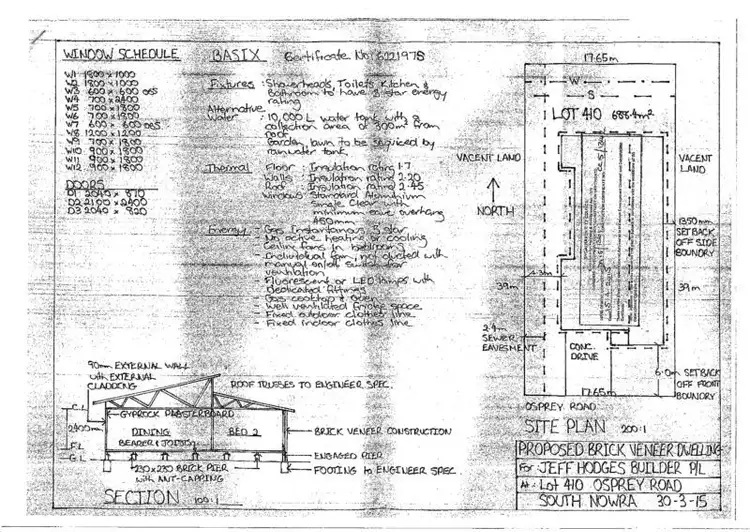 WINDOW SCHEDULE
W1 1800 x 1000
W2 1800 x 1000
W3 600 x 600 OBS
W4 700 x 2400
W5 700 x 1800
W6 700 x 1800
W7 600 x 600 OBS
W8 1200 x 1200
W9 700 x 1800
W10 900 x 1800
W11 900 x 1800
W12 900 x 1800
DOORS
D1 2040 x 870
D2 2100 x 2400
D3 2040 x 820
BASIX Certificate No:
Fixtures : Showerheads, Toilets Kitchen &
Bathroom to have 3 star energy
rating
Alternative
Water : 10,000 L water tank with a
collection area of 300m² from
roof
Garden, lawn to be serviced by
rainwater tank
Thermal Floor : Insulation rating 1.7
Walls : Insulation rating 2.20
Roof : Insulation rating 2.45
Windows Standard Aluminium
Single Clear with
minimum eave overhang
450mm
Energy - Gas Instantaneous 5 star
- No active heating or cooling
Ceiling fans in bedrooms
- Individual fan, not ducted with
manual on/off switch for
ventilation
- Fluorescent or LED lamps with
dedicated fittings
- Gas cooktop & oven
- Well ventilated fridge space
- Fixed outdoor clothes line
- Fixed indoor clothes line
17.65m
W
S
LOT 410 688.4m²
VACENT LAND
VACENT
LAND
NORTH
1350mm
SET BACK
OFF SIDE
BOUNDRY
39m
39m
2.4m
SEWER
EAVESMENT
CONC.
DRIVE
6.0m SETBACK
OFF FRONT
BOUNDRY
17.65m
OSPREY ROAD
SITE PLAN 200:1
90mm EXTERNAL WALL
with EXTERNAL
CLADDING
ROOF TRUSSES TO ENGINEER SPEC.
C.L
GYPROCK PLASTERBOARD
2400mm
DINING
BED 2
BRICK VENEER CONSTRUCTION
BEARER & JOISTS
F.L
G.L
ENGAGED PIER
230 x 230 BRICK PIER
with ANT-CAPPING
FOOTING to ENGINEER SPEC.
SECTION 100:1
PROPOSED BRICK VENEER DWELLING
For: JEFF HODGES BUILDER P/L
At: Lot 410 OSPREY ROAD
SOUTH NOWRA 30-3-15